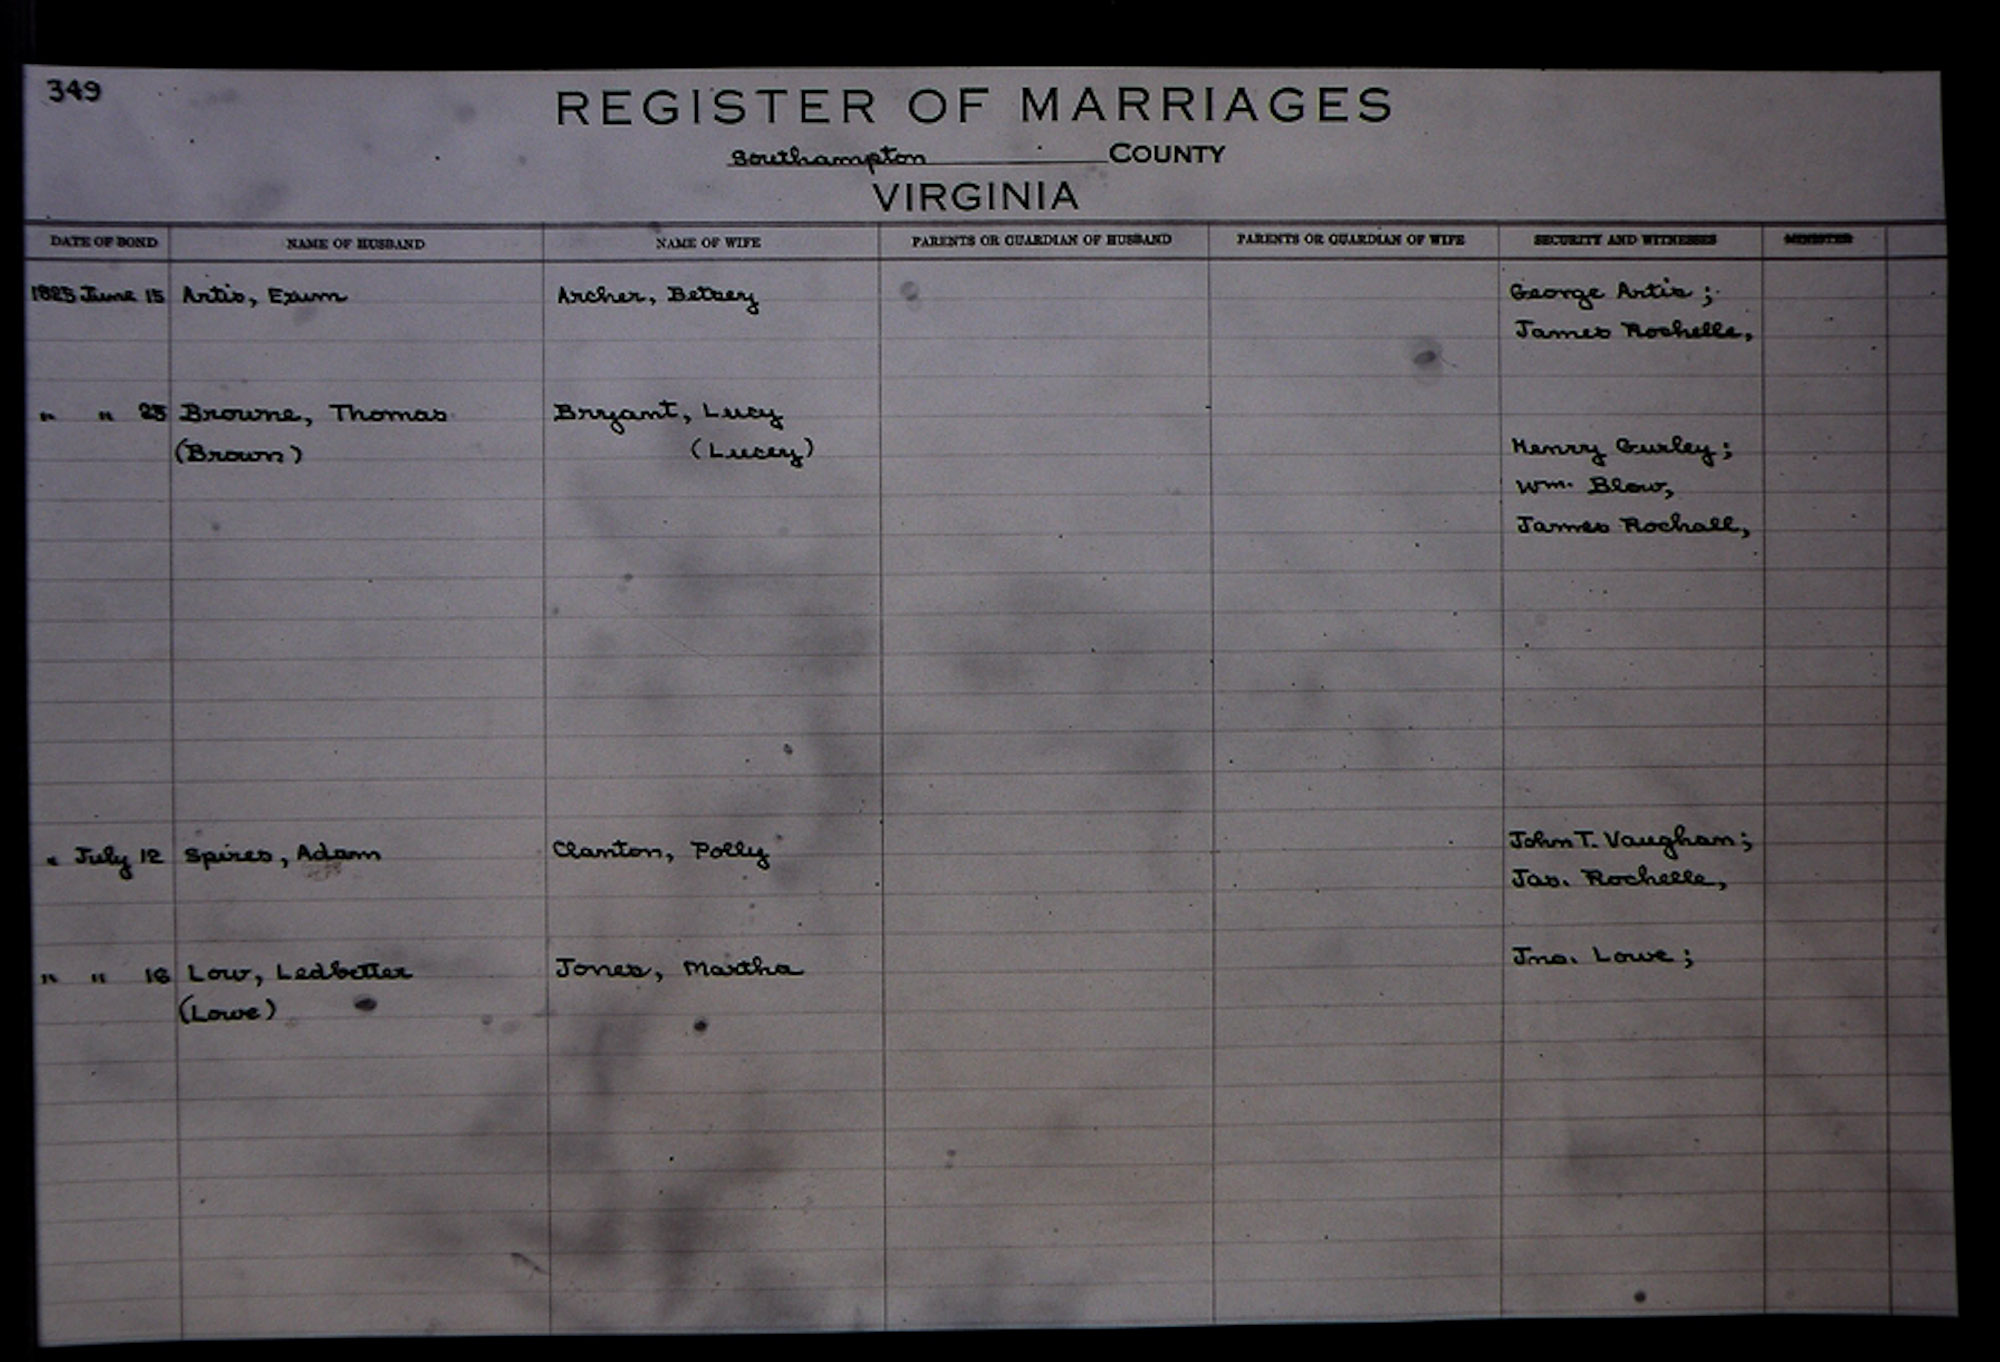 349
REGISTER OF MARRIAGES
Southampton COUNTY
VIRGINIA
DATE OF BOND NAME OF HUSBAND NAME OF WIFE PARENTS OR GUARDIAN OF HUSBAND PARENTS OR GUARDIAN OF WIFE SECURITY AND WITNESSES MINISTER
1825 June 15 Artis, Exum Archer, Betsey George Artis;
James Rochelle,
" " 25 Browne, Thomas Bryant, Lucy
(Brown) (Lucey) Henry Gurley;
Wm. Blow,
James Rochall,
" July 12 Spires, Adam Clanton, Polly John T. Vaughan;
Jas. Rochelle,
" " 16 Low, Ledbetter Jones, Martha Jno. Lowe;
(Lowe)